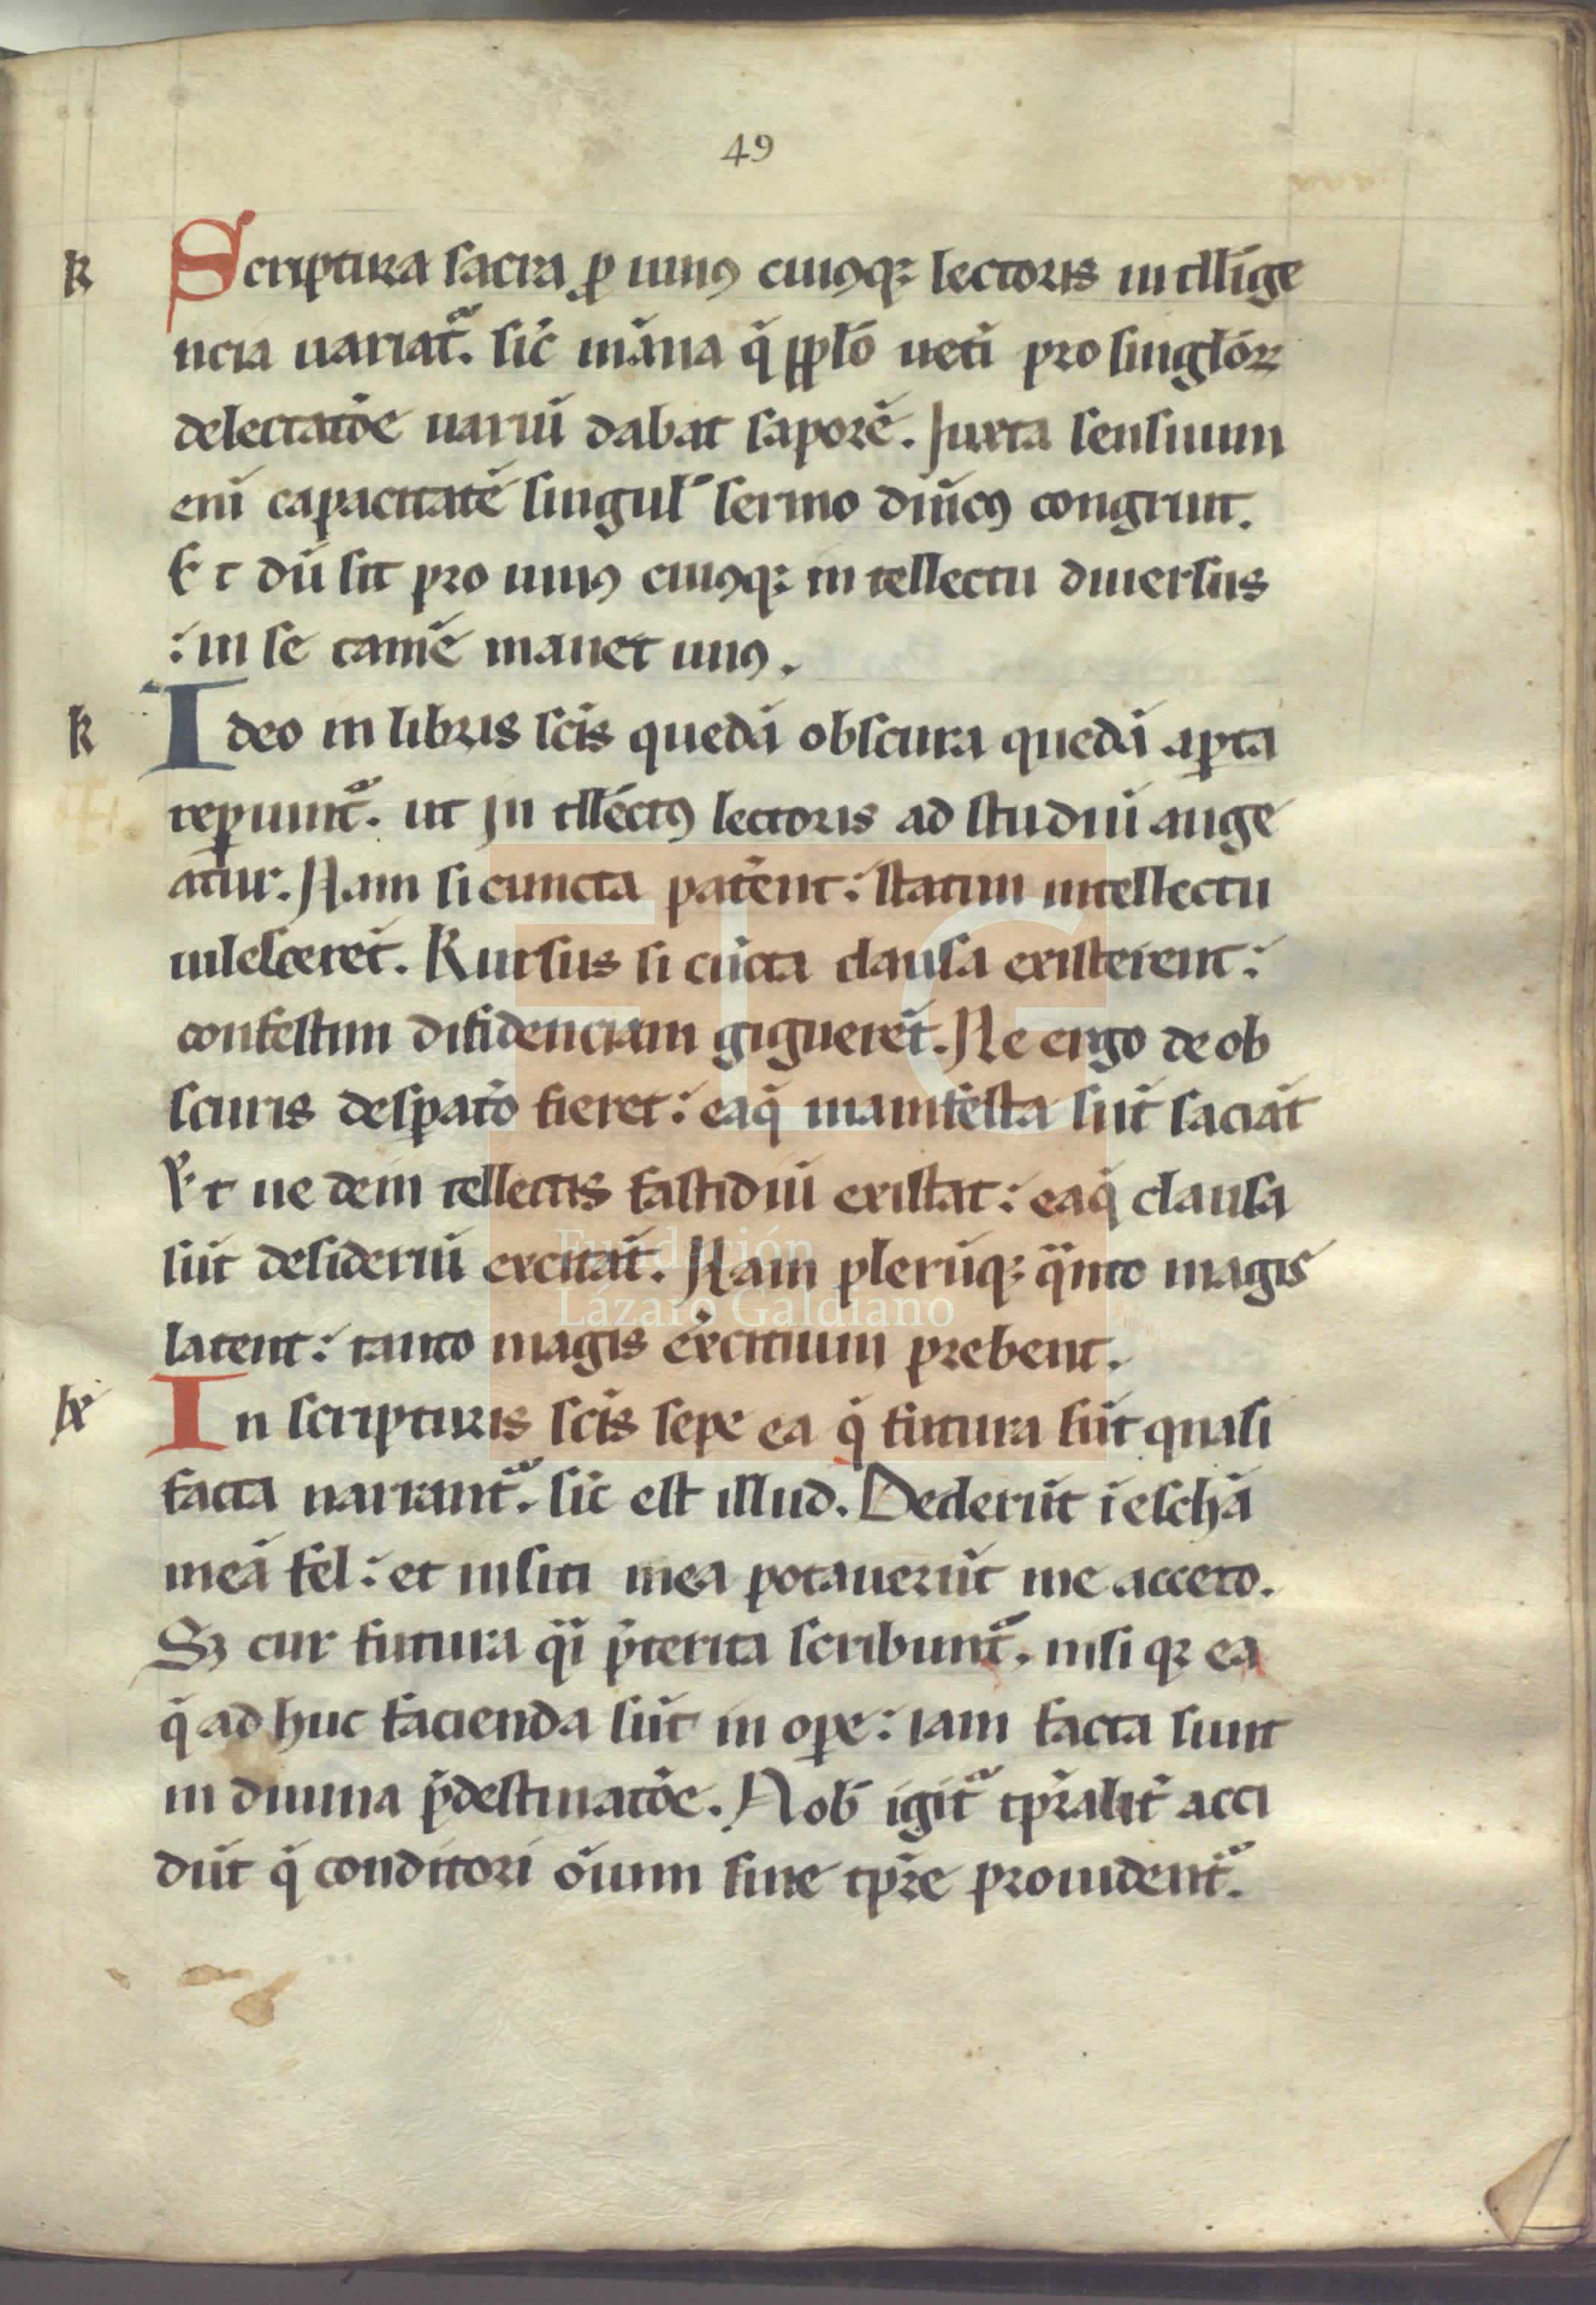 49
Scriptura sacra ꝓ unius cuiusqꝫ lectoris in tll̄ige
ncia uariat᷑. sic̄ māna q̄ ppl̄o uet̄i pro singl̄oꝝ
delectatōe uariū dabat saporē. Juxta sensuum
enī capacitatē singul̄ sermo dn̄icꝰ congruit.
Et dū sit pro uniꝰ cuiusqꝫ in tellectu diuersus
: in se tamē manet unꝰ.
Ideo in libris sc̄is quedā obscura quedā aꝑta
reꝑiunt᷑. ut in tll̄ectꝰ lectoris ad studiū auge
atur. Nam si cuncta patērent: statim intellectu
uilesceret. Rursus si cūcta clausa existerent:
confestim difidenciam gigneret. Ne ergo de ob
scuris desꝑatō fieret: eaq̄ manifesta sūt saciāt
Et ne de in tellectis fastidiū existat: eaq̄ clausa
sūt desideriū excitāt. Nam plerūqꝫ qᷓnto magis
latent: tanto magis ex̄citium prebent.
In scripturis sc̄is sepe ea q̄ futura sūt quasi
facta narrant᷑. sic̄ est illud. Dederūt ī eschā
meā fel: et in siti mea potauerūt me acceto.
Sꝫ cur futura qᷓi p̄terita scribunt᷑. nisi qꝫ ea
q̄ ad huc facienda sūt in oꝑe: iam facta sunt
in diuina p̄destinatōe. Nob̄ igit᷑ tp̄ralit̄ acci
dūt q̄ conditori ōium sine tp̄re prouident᷑.
Fundación
Lázaro Galdiano